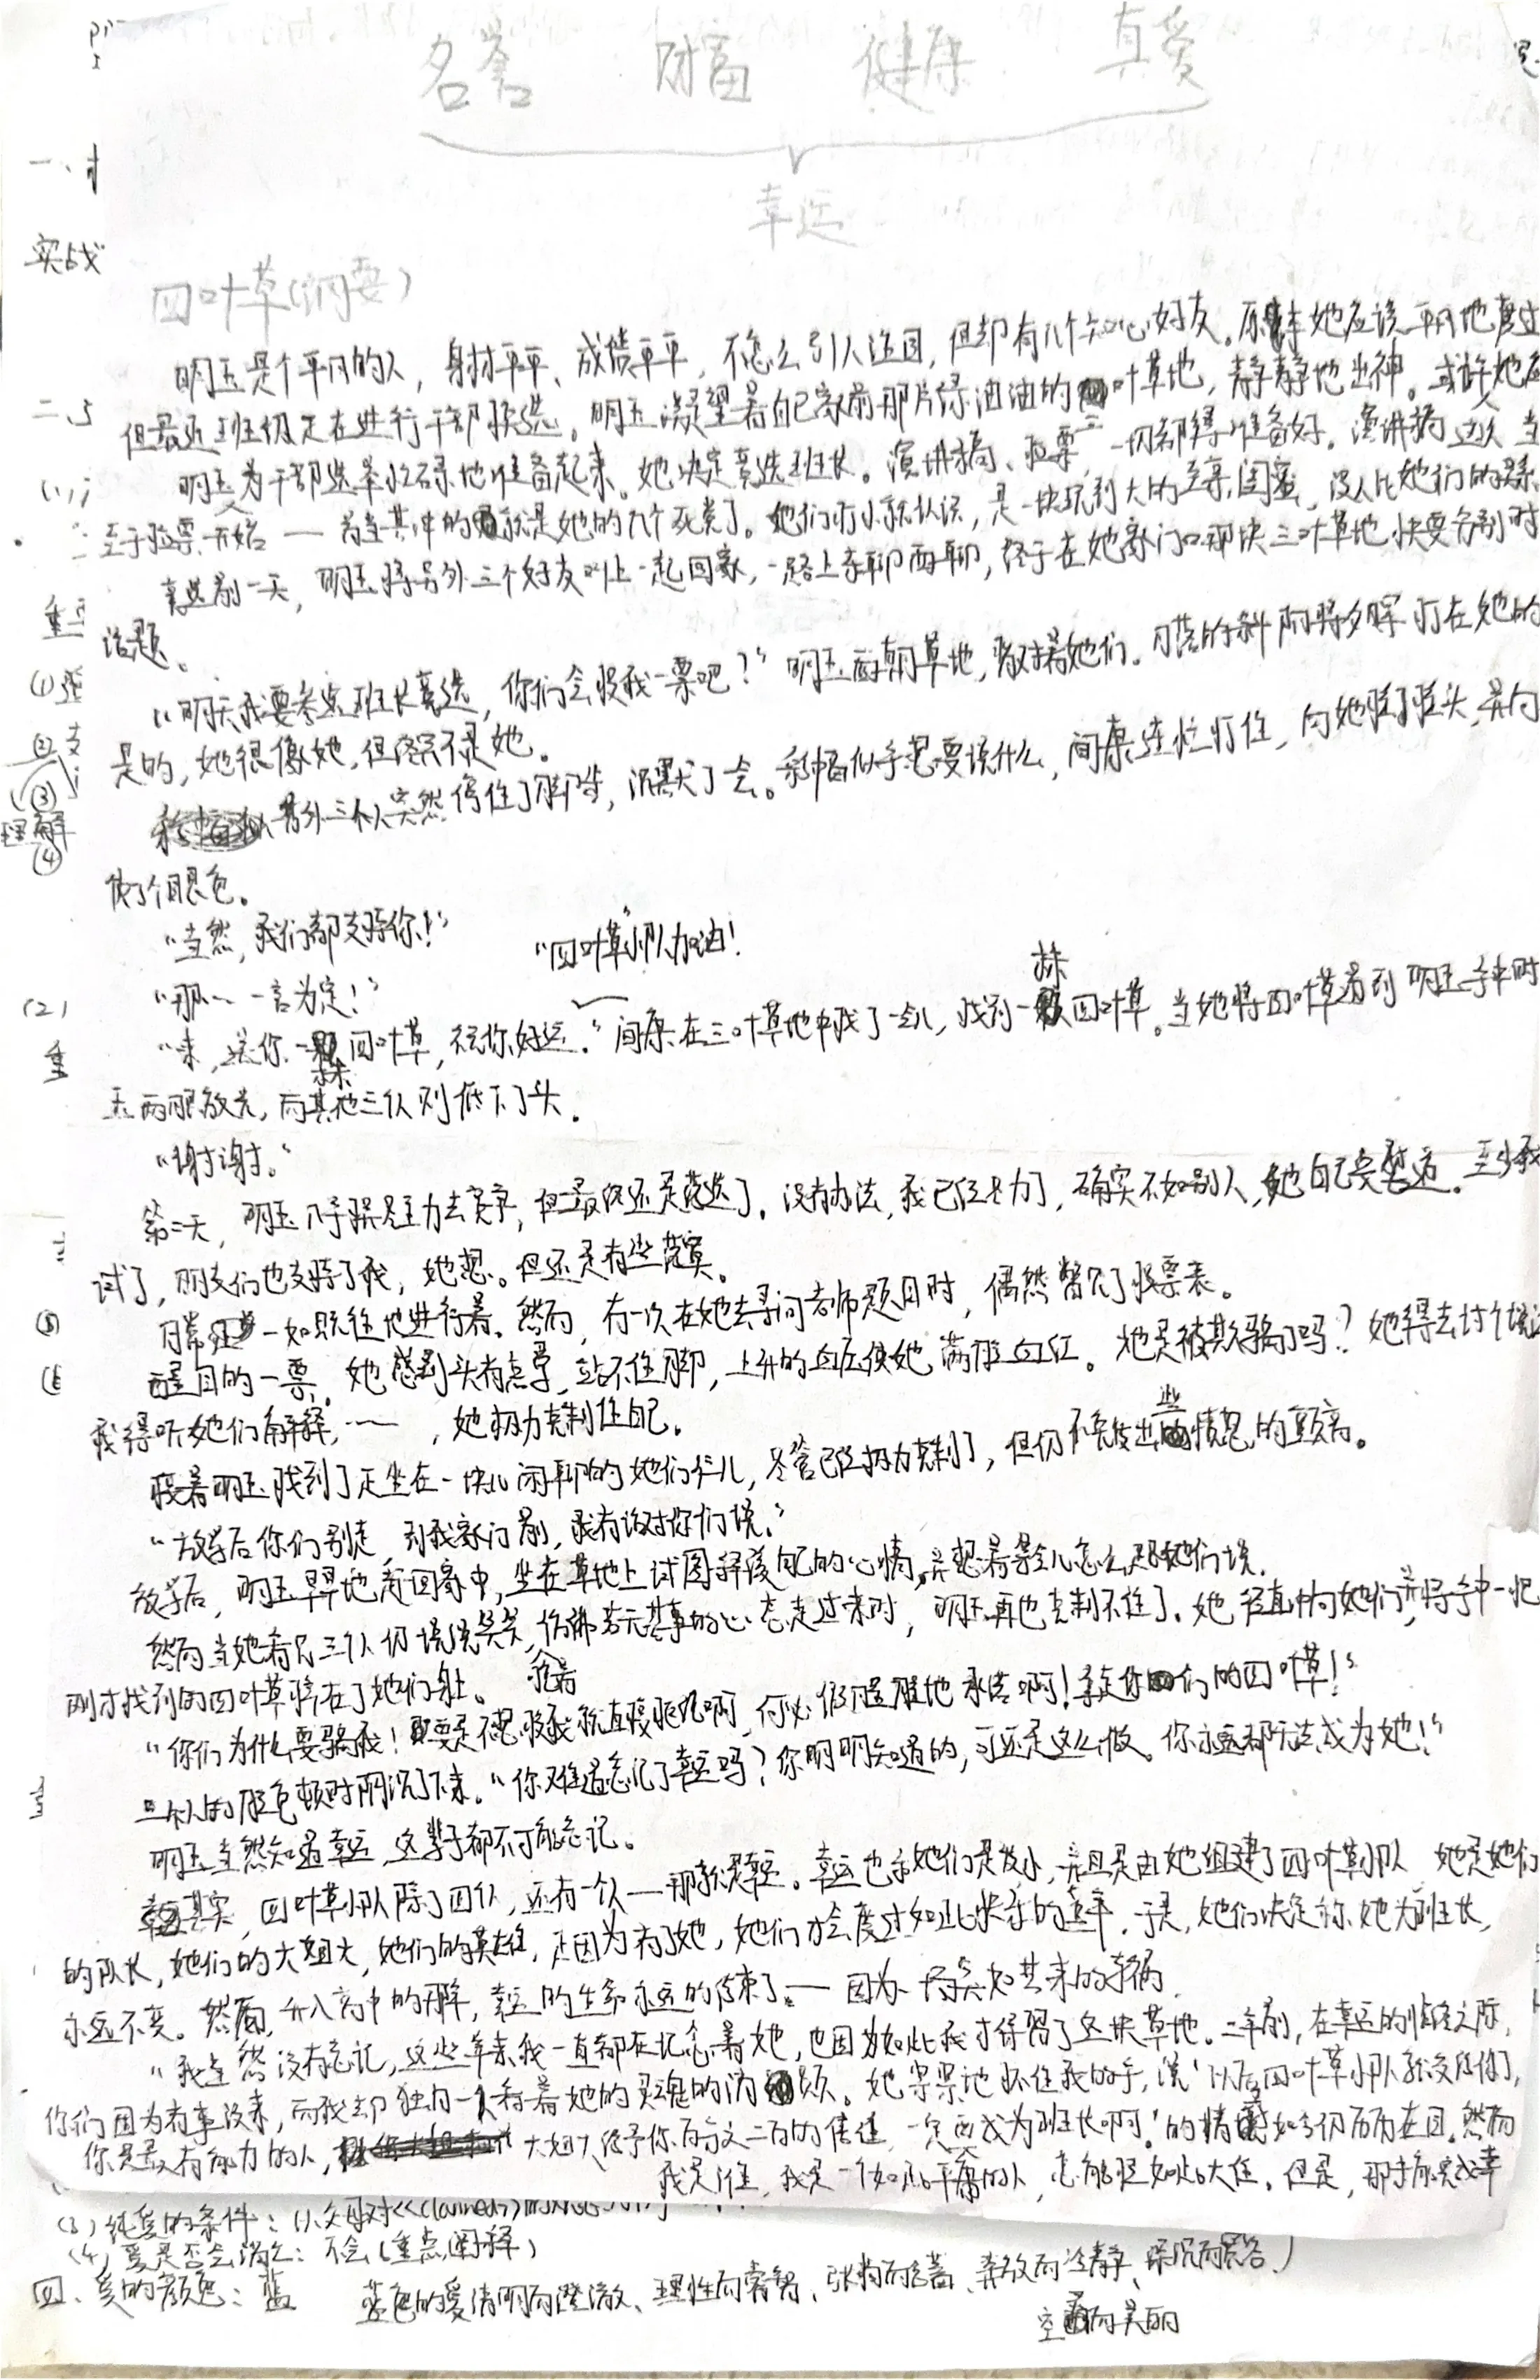 名誉 财富 健康 真爱
幸运
四叶草(纲要)
明玉是个平凡的人，身材平平、成绩平平，不怎么引人注目，但却有几个知心好友。原本她应该平凡地度过
但最近班级正在进行干部竞选。明玉凝望着自己家前那片绿油油的三叶草地，静静地出神。或许她应
明玉为干部选举忙碌地准备起来。她决定竞选班长。演讲稿、拉票，一切都得准备好。演讲稿
至于拉票开始——首当其冲的就是她的几个死党了。她们打小就认识，是一块玩到大的至亲闺蜜，没人比她们的关系
竞选前一天，明玉将另外三个好友叫上一起回家，一路上东聊西聊，终于在她家门口那块三叶草地快要分别时
话题。
“明天我要参加班长竞选，你们会投我一票吧？”明玉面朝草地，背对着她们。日落的斜阳将夕晖打在她的
是的，她很像她，但终究不是她。
另外三个人突然停住了脚步，沉默了一会。 似乎想要说什么，间康连忙打住，向她摇了摇头，并向
使了个眼色。
“当然，我们都支持你！” “四叶草小队加油！
“那……一言为定！”
“来，送你一株四叶草，祝你好运。”间康在三叶草地中找了一会儿，找到一株四叶草。当她将四叶草递到明玉手中时
玉两眼放光，而其他三人则低下了头。
“谢谢。”
第二天，明玉几乎竭尽全力去竞争，但最终还是落选了。没有办法，我已经尽力了，确实不如别人，她自己安慰道。至少我
试了，朋友们也支持了我，她想。但还是有些落寞。
日常一如既往地进行着。然而，有一次在她去寻问老师题目时，偶然瞥见了投票表。
醒目的一票。她感到头有点晕，站不住脚，上升的血压使她满脸血红。她是被欺骗了吗？她得去讨个说法
我得听她们解释，……，她极力克制住自己。
接着明玉找到了正坐在一块儿闲聊的她们仨儿，尽管已经极力克制了，但仍不免发出些愤怒的颤音。
“放学后你们别走，到我家门前，我有话对你们说。”
放学后，明玉早早地赶回家中，坐在草地上试图舒缓自己的心情，并想着等会儿怎么跟她们说。
然而当她看见三个人仍说说笑笑，仿佛抱着若无其事的心态走过来时，明玉再也克制不住了。她径直冲向她们，并将手中一把
刚才找到的四叶草摔在了她们身上。
“你们为什么要骗我！要是不想投我就直接拒绝啊，何必假惺惺地承诺啊！拿走你们的四叶草！”
三个人的脸色顿时阴沉了下来。“你难道忘记了幸运吗？你明明知道的，可还是这么做。你永远都无法成为她！”
明玉当然知道幸运，这辈子都不可能忘记。
其实，四叶草小队除了四人，还有一个人——那就是幸运。幸运也和她们是发小，并且是由她组建了四叶草小队，她是她们
的队长，她们的大姐大，她们的英雄，正因为有了她，她们才会度过如此快乐的童年，于是，她们决定称她为班长，
永远不变。然而，升入高中的那年，幸运的生命永远的结束了——因为一场突如其来的车祸。
“我当然没有忘记，这些年来我一直都在记念着她，也因为如此我才保留了这块草地。三年前，在幸运的临终之际，
你们因为有事没来，而我却独自一人看着她的灵魂的消殒。她紧紧地抓住我的手，说‘以后四叶草小队就交给你了，
你是最有能力的人，大姐大给予你百分之二百的信任，一定要成为班长啊！’的情景如今仍历历在目。然而
我是谁，我是一个如此平庸的人，怎能担如此大任。但是，那时能完成幸
(3)纯爱的条件：
(4)爱是否会消亡：不会(重点阐释)
四、爱的颜色：蓝 蓝色的爱清明而澄澈、理性而睿智、
空 而美丽